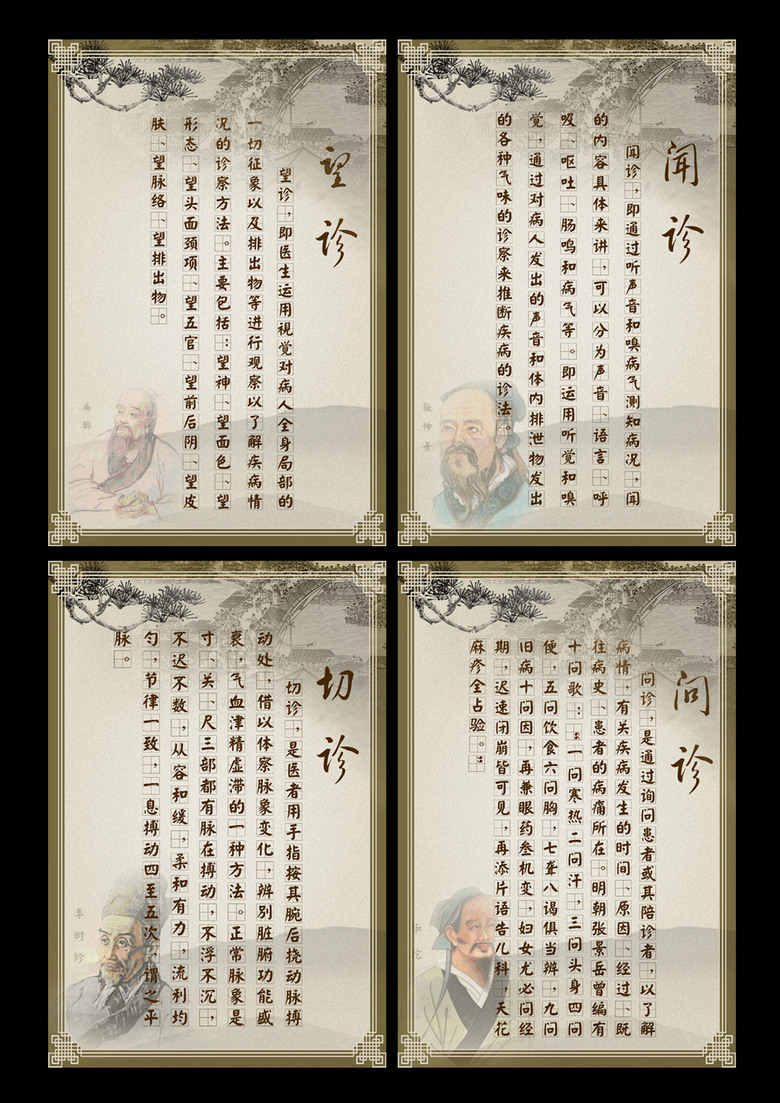 望诊
望诊,即医生运用视觉对病人全身局部的
一切征象以及排出物等进行观察以了解疾病情
况的诊察方法。主要包括:望神、望面色、望
形态、望头面颈项、望五官、望前后阴、望皮
肤、望脉络、望排出物。
扁鹊
闻诊
闻诊,即通过听声音和嗅病气测知病况,闻
的内容具体来讲,可以分为声音、语言、呼
吸、呕吐、肠鸣和病气等。即运用听觉和嗅
觉,通过对病人发出的声音和体内排泄物发出
的各种气味的诊察来推断疾病的诊法。
张仲景
切诊
切诊,是医者用手指按其腕后挠动脉搏
动处,借以体察脉象变化,辨别脏腑功能盛
衰,气血津精虚滞的一种方法。正常脉象是
寸、关、尺三部都有脉在搏动,不浮不沉,
不迟不数,从容和缓,柔和有力,流利均
匀,节律一致,一息搏动四至五次,谓之平
脉。
李时珍
问诊
问诊,是通过询问患者或其陪诊者,以了解
病情,有关疾病发生的时间、原因、经过、既
往病史、患者的病痛所在。明朝张景岳曾编有
十问歌:“一问寒热二问汗,三问头身四问
便,五问饮食六问胸,七聋八渴俱当辨,九问
旧病十问因,再兼服药参机变,妇女尤必问经
期,迟速闭崩皆可见,再添片语告儿科,天花
麻疹全占验。”